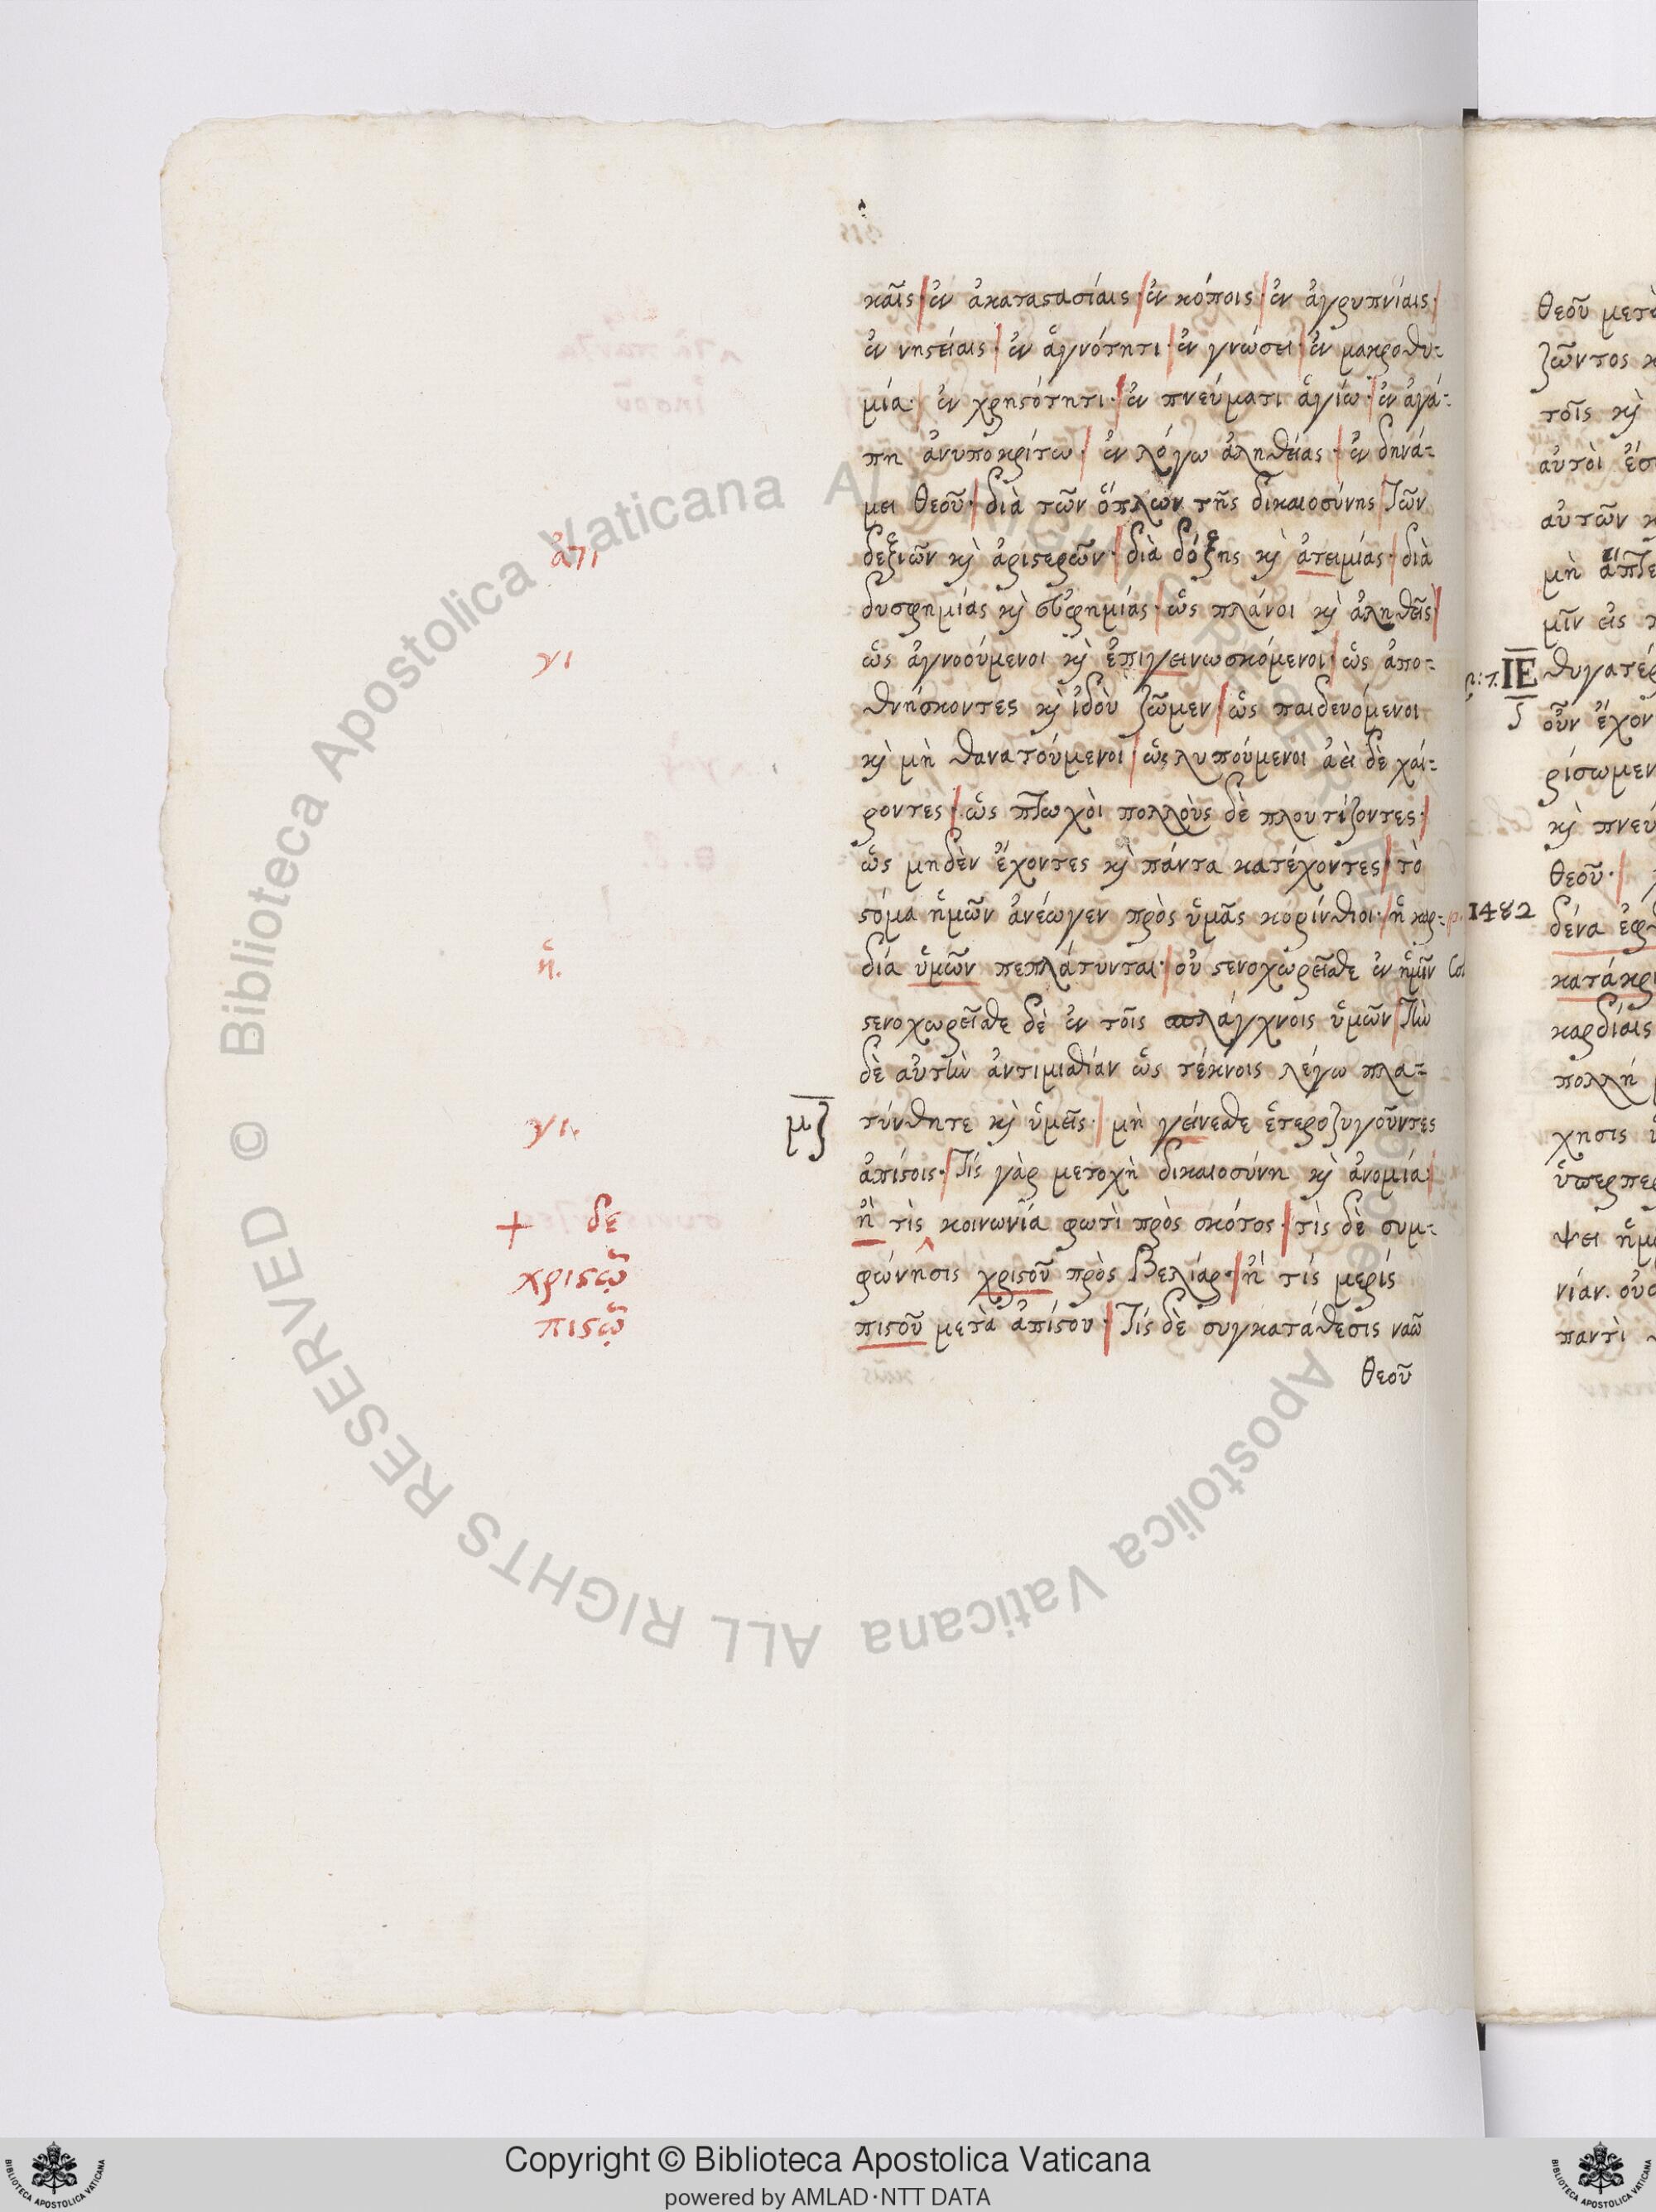 καῖς ἐν ἀκαταστασίαις· ἐν κόποις· ἐν ἀγρυπνίαις·
ἐν νηστείαις· ἐν ἁγνότητι· ἐν γνώσει· ἐν μακροθυ-
μία· ἐν χρηστότητι· ἐν πνεύματι ἁγίω· ἐν ἀγά-
πη ἀνυποκρίτω· ἐν λόγω ἀληθείας· ἐν δηνά-
μει θεοῦ· διὰ τῶν ὅπλων τῆς δικαιοσύνης τῶν
ἀτι
δεξιῶν κὶ ἀριστερῶν· διὰ δόξης κὶ ἀτειμίας· διὰ
δυσφημίας κὶ εὐφημίας· ὡς πλάνοι κὶ ἀληθεῖς
γι
ὡς ἀγνοούμενοι κὶ ἐπιγεινωσκόμενοι· ὡς ἀπο-
θνήσκοντες κὶ ἰδοὺ ζῶμεν· ὡς παιδευόμενοι
κὶ μὴ θανατούμενοι· ὡς λυπούμενοι ἀεὶ δὲ χαί-
ροντες· ὡς πτωχὸι πολλοὺς δὲ πλουτίζοντες·
ὡς μηδὲν ἔχοντες κὶ πάντα κατέχοντες· τὸ
στόμα ἡμῶν ἀνέωγεν πρὸς ὑμᾶς κορίνθιοι· ἡ καρ-
ἡ.
δία ὑμῶν πεπλάτυνται· οὐ στενοχωρεῖσθε ἐν ἡμῖν
στενοχωρεῖσθε δὲ ἐν τοῖς σπλάγχνοις ὑμῶν τὴν
δὲ αὐτὴν ἀντιμισθίαν ὡς τέκνοις λέγω πλα-
γι.
μζ
τύνθητε κὶ ὑμεῖς· μὴ γείνεσθε ἑτεροζυγοῦντες
ἀπίστοις· τίς γὰρ μετοχὴ δικαιοσύνη κὶ ἀνομία·
+ δε
ἢ τὶς κοινωνία φωτὶ πρὸς σκότος· τὶς δὲ συμ-
χριστῷ
φώνησις χριστοῦ πρὸς Βελίαρ· ἢ τίς μερίς
πιστῷ
πιστοῦ μετὰ ἀπίστου· τίς δὲ συγκατάθεσις ναῶ
θεοῦ
θεοῦ μετὰ
ζῶντος κ
τοῖς κὶ
αὐτὸι ἔσ
αὐτῶν κ
μὴ ἅπτε
μῖν εἰς
IE
θυγατέρ
ς
οὖν ἔχον
ρίσωμεν
κὶ πνεύ
θεοῦ·
1482
δένα ἐφ
κατάκρι
καρδίαις
πολλή
χησις
ὑπερπερ
ψει ἡμ
νίαν. οὐ
παντὶ
© Biblioteca Apostolica Vaticana ALL RIGHTS RESERVED
Biblioteca Apostolica Vaticana ALL RIGHTS RESERVED
Copyright © Biblioteca Apostolica Vaticana
powered by AMLAD·NTT DATA
BIBLIOTECA APOSTOLICA VATICANA
BIBLIOTECA APOSTOLICA VATICANA